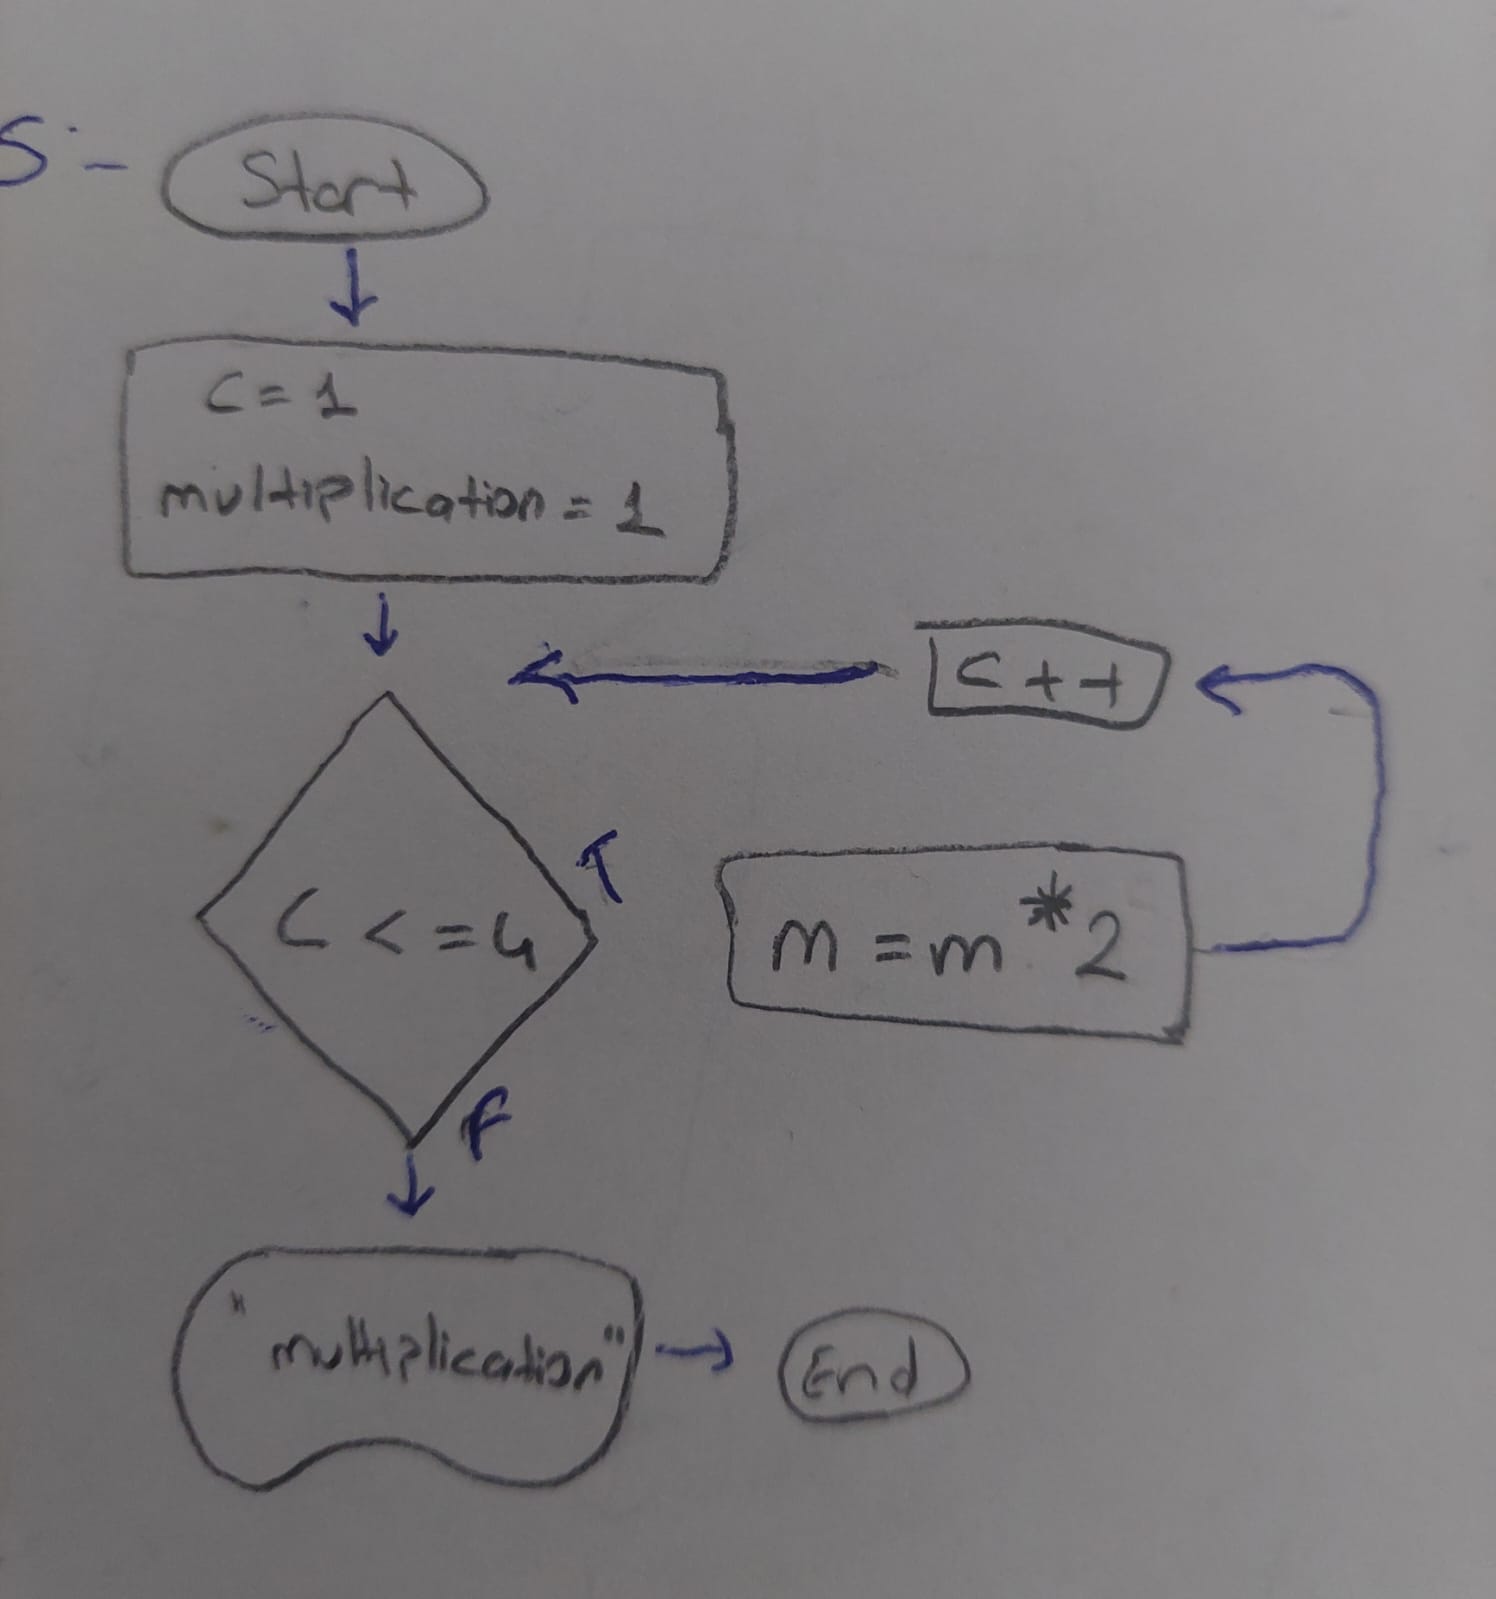 5-
Start
C = 1
multiplication = 1
C++
T
C <= 4
m = m * 2
F
"multiplication"
End